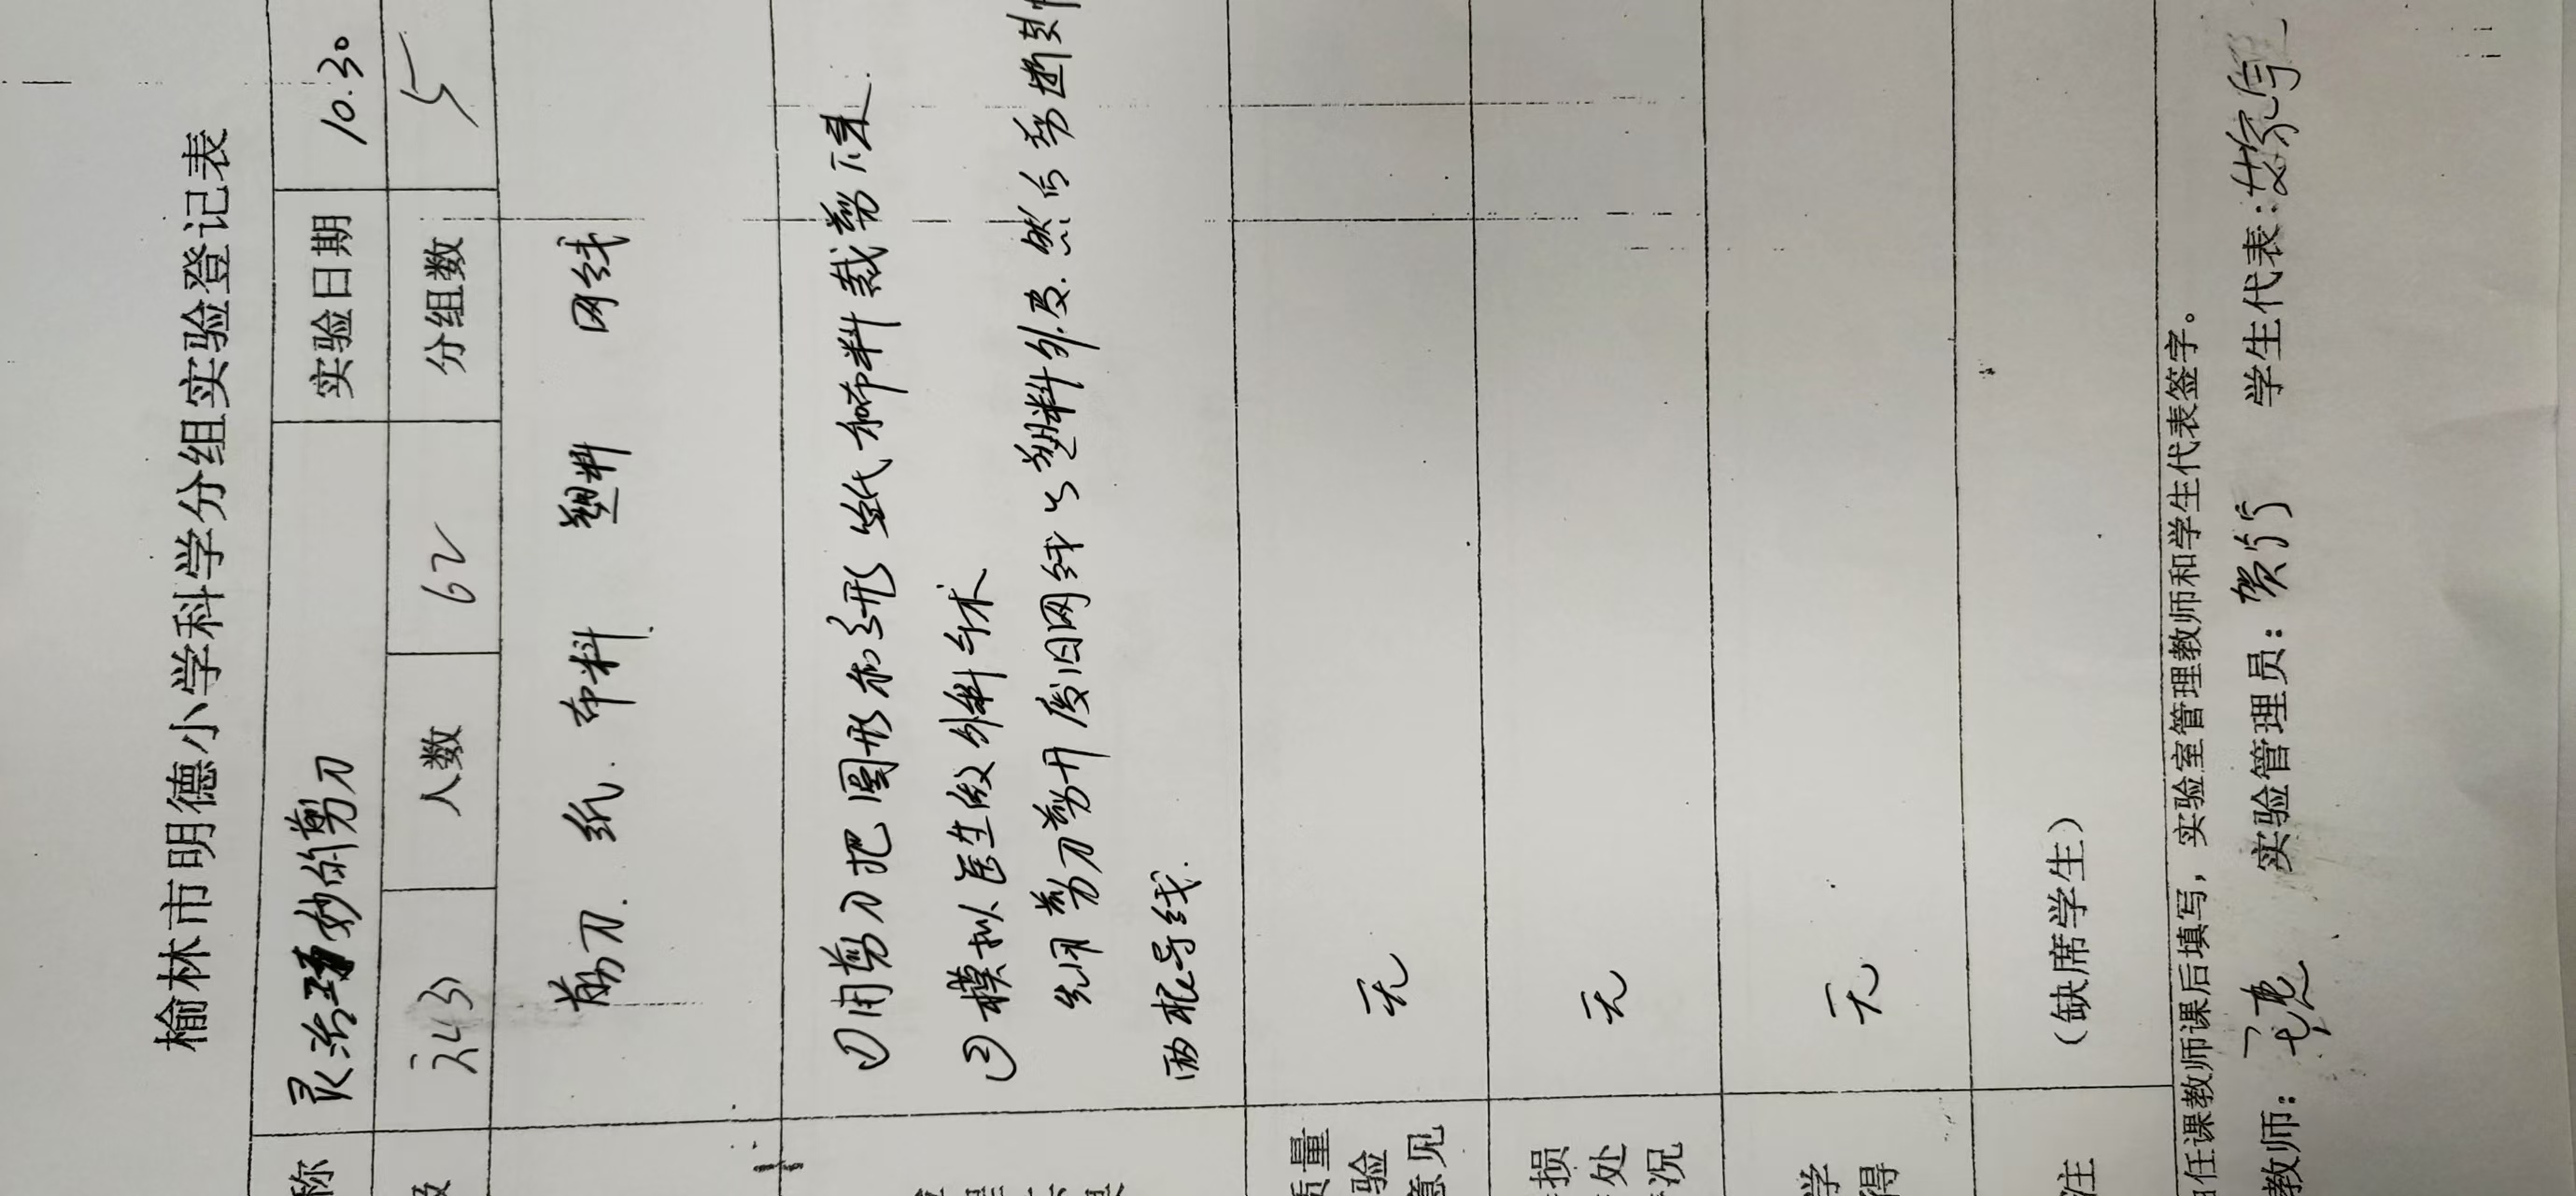 榆林市明德小学科学分组实验登记表
称 灵活巧妙的剪刀 实验日期 10.30
级 243 人数 62 分组数 5
剪刀. 纸. 布料 塑料 网线
①用剪刀把圆形和 形 纸、和布料裁剪下来.
②模拟医生做外科手术
先用剪刀剪开废旧网线 塑料外皮. 然后剪断其中
两根导线.
质量
验
意见 无
损
处
况 无
学
得 无
注 (缺席学生)
由任课教师课后填写，实验室管理教师和学生代表签字。
教师： 实验管理员：贺 学生代表：